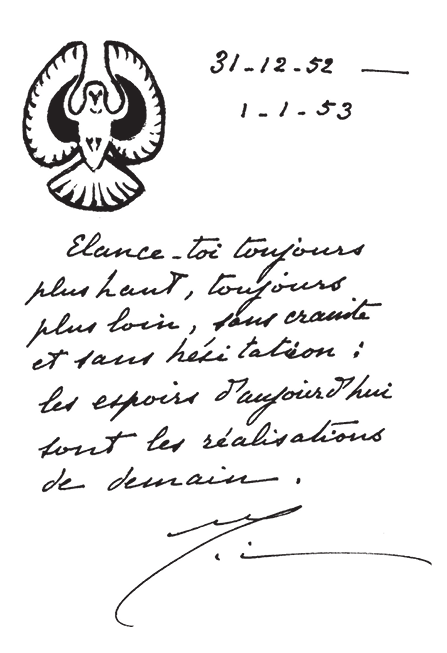 31-12-52 —
1-1-53
Elance-toi toujours
plus haut, toujours
plus loin, sans crainte
et sans hésitation :
les espoirs d'aujourd'hui
sont les réalisations
de demain.